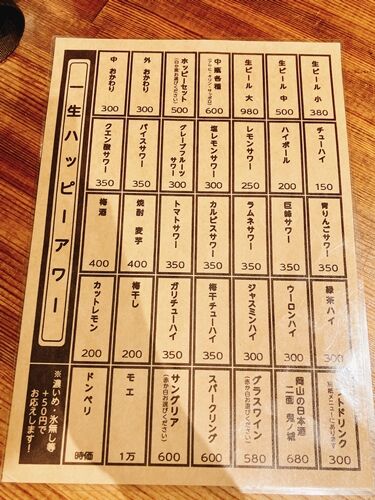 生ビール 小
380
生ビール 中
500
生ビール 大
980
中瓶各種
600
ホッピーセット
(白か黒お選びください)
500
外 おかわり
300
中 おかわり
300
チューハイ
150
ハイボール
200
レモンサワー
250
塩レモンサワー
300
グレープフルーツ
サワー
300
バイスサワー
350
クエン酸サワー
350
青りんごサワー
350
巨峰サワー
350
ラムネサワー
350
カルピスサワー
350
トマトサワー
350
焼酎 麦芋
400
梅酒
400
緑茶ハイ
300
ウーロンハイ
300
ジャスミンハイ
300
梅干チューハイ
350
ガリチューハイ
350
梅干し
200
カットレモン
200
トドリンク
別紙メニューにあります
300
岡山の日本酒
二面 鬼ノ城
680
グラスワイン
(赤か白お選びください)
580
スパークリング
600
サングリア
(赤か白お選びください)
600
モエ
1万
ドンペリ
時価
一生ハッピーアワー
※濃いめ、氷無し等
+50円で
お応えします!